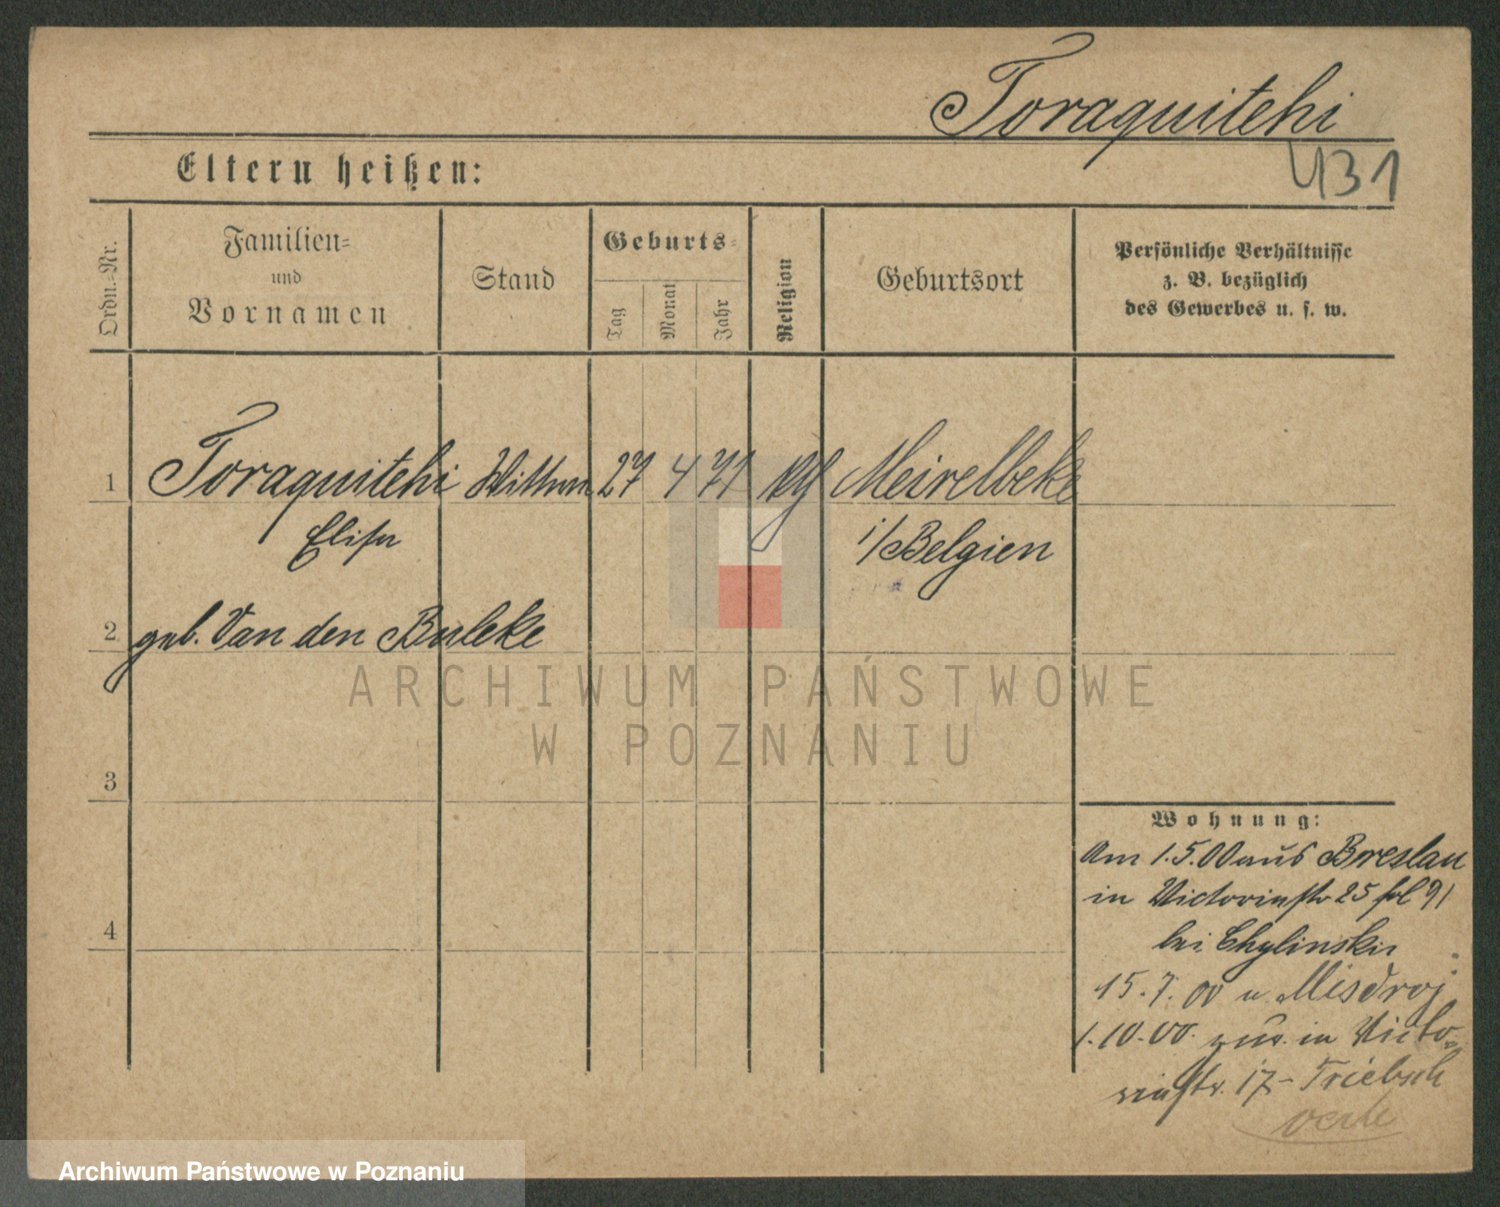 Toraquitehi
431
Eltern heißen:
Ordn.-Nr.
Familien-
und
Vornamen
Stand
Geburts-
Tag
Monat
Jahr
Religion
Geburtsort
Persönliche Verhältnisse
z. B. bezüglich
des Gewerbes u. s. w.
1 Toraquitehi 27 4 71 Meirelbeke
Elisa i/Belgien
2 geb. Van den Bulcke
ARCHIWUM PAŃSTWOWE
W POZNANIU
3
Wohnung:
Am 1.5.00 aus Breslau
in Victoriastr 25
4
bei Chylinski
15.7.00 n. Misdroj
1.10.00. zur. in Victo-
riastr. 17 - Triebsch
Archiwum Państwowe w Poznaniu